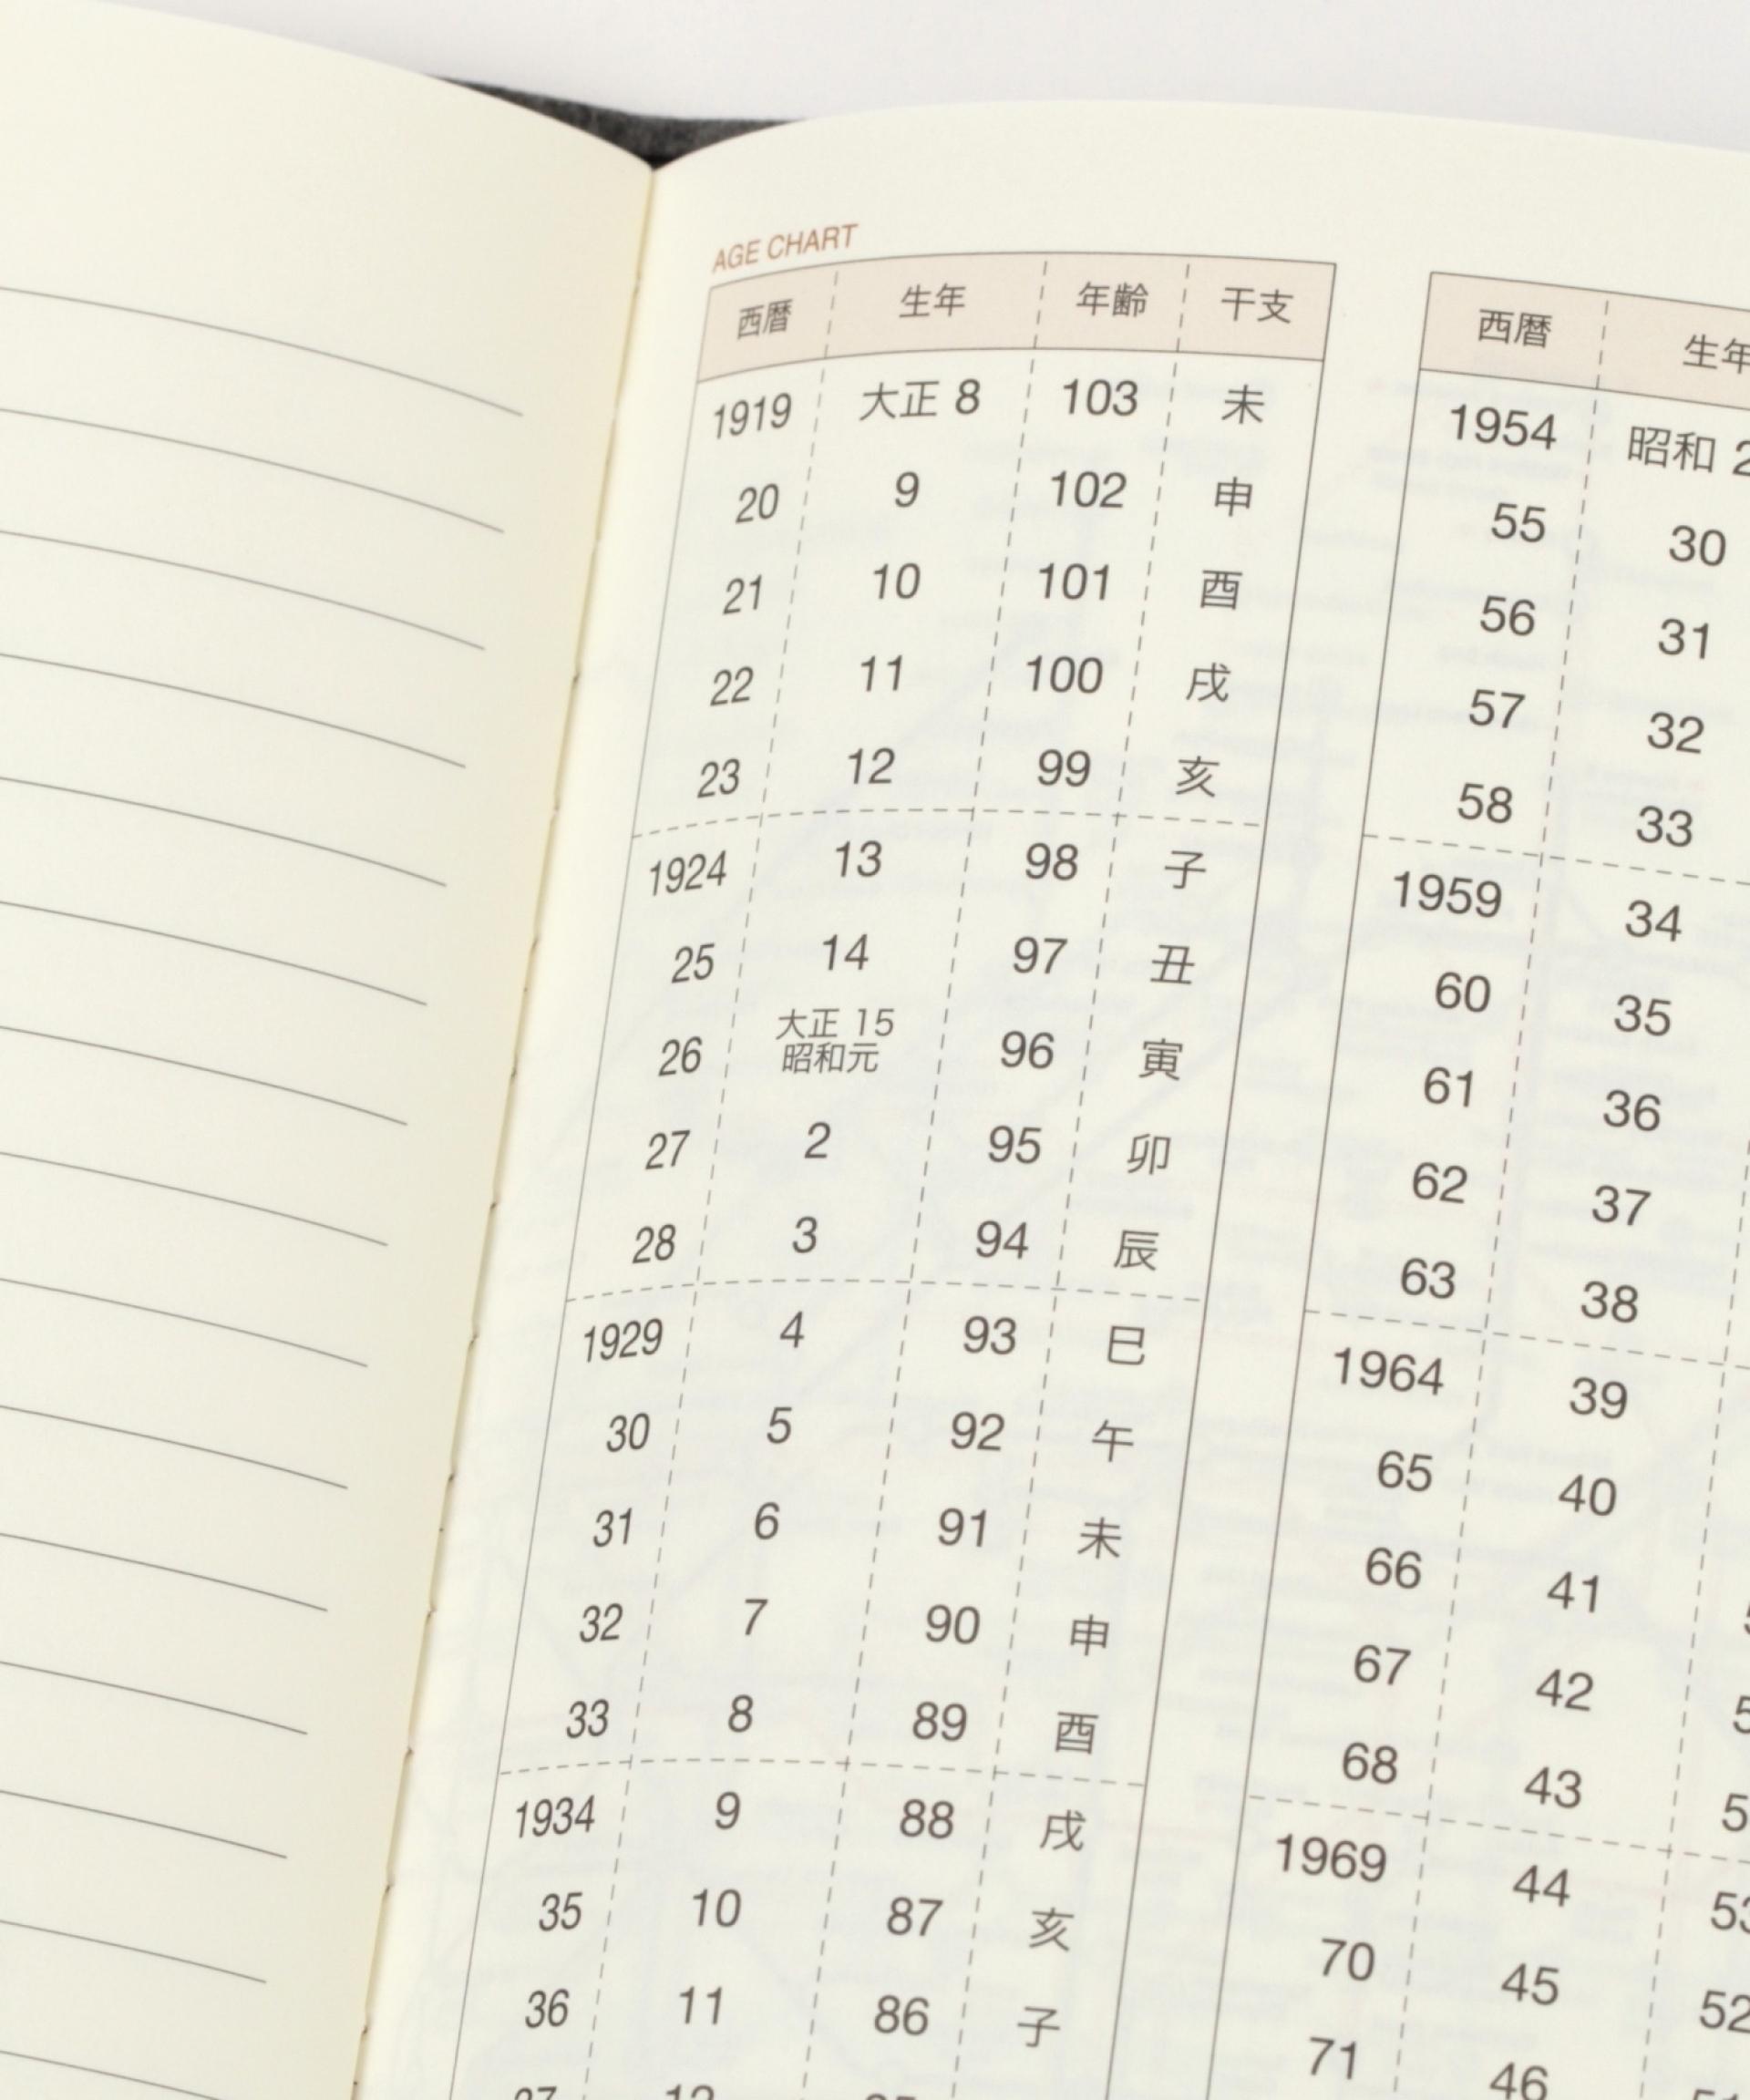 AGE CHART
西暦 生年 年齢 干支
1919 大正 8 103 未
20 9 102 申
21 10 101 酉
22 11 100 戌
23 12 99 亥
1924 13 98 子
25 14 97 丑
26 大正 15 昭和元 96 寅
27 2 95 卯
28 3 94 辰
1929 4 93 巳
30 5 92 午
31 6 91 未
32 7 90 申
33 8 89 酉
1934 9 88 戌
35 10 87 亥
36 11 86 子
西暦 生年
1954 昭和 2
55 30
56 31
57 32
58 33
1959 34
60 35
61 36
62 37
63 38
1964 39
65 40
66 41
67 42
68 43
1969 44 53
70 45 52
71 46